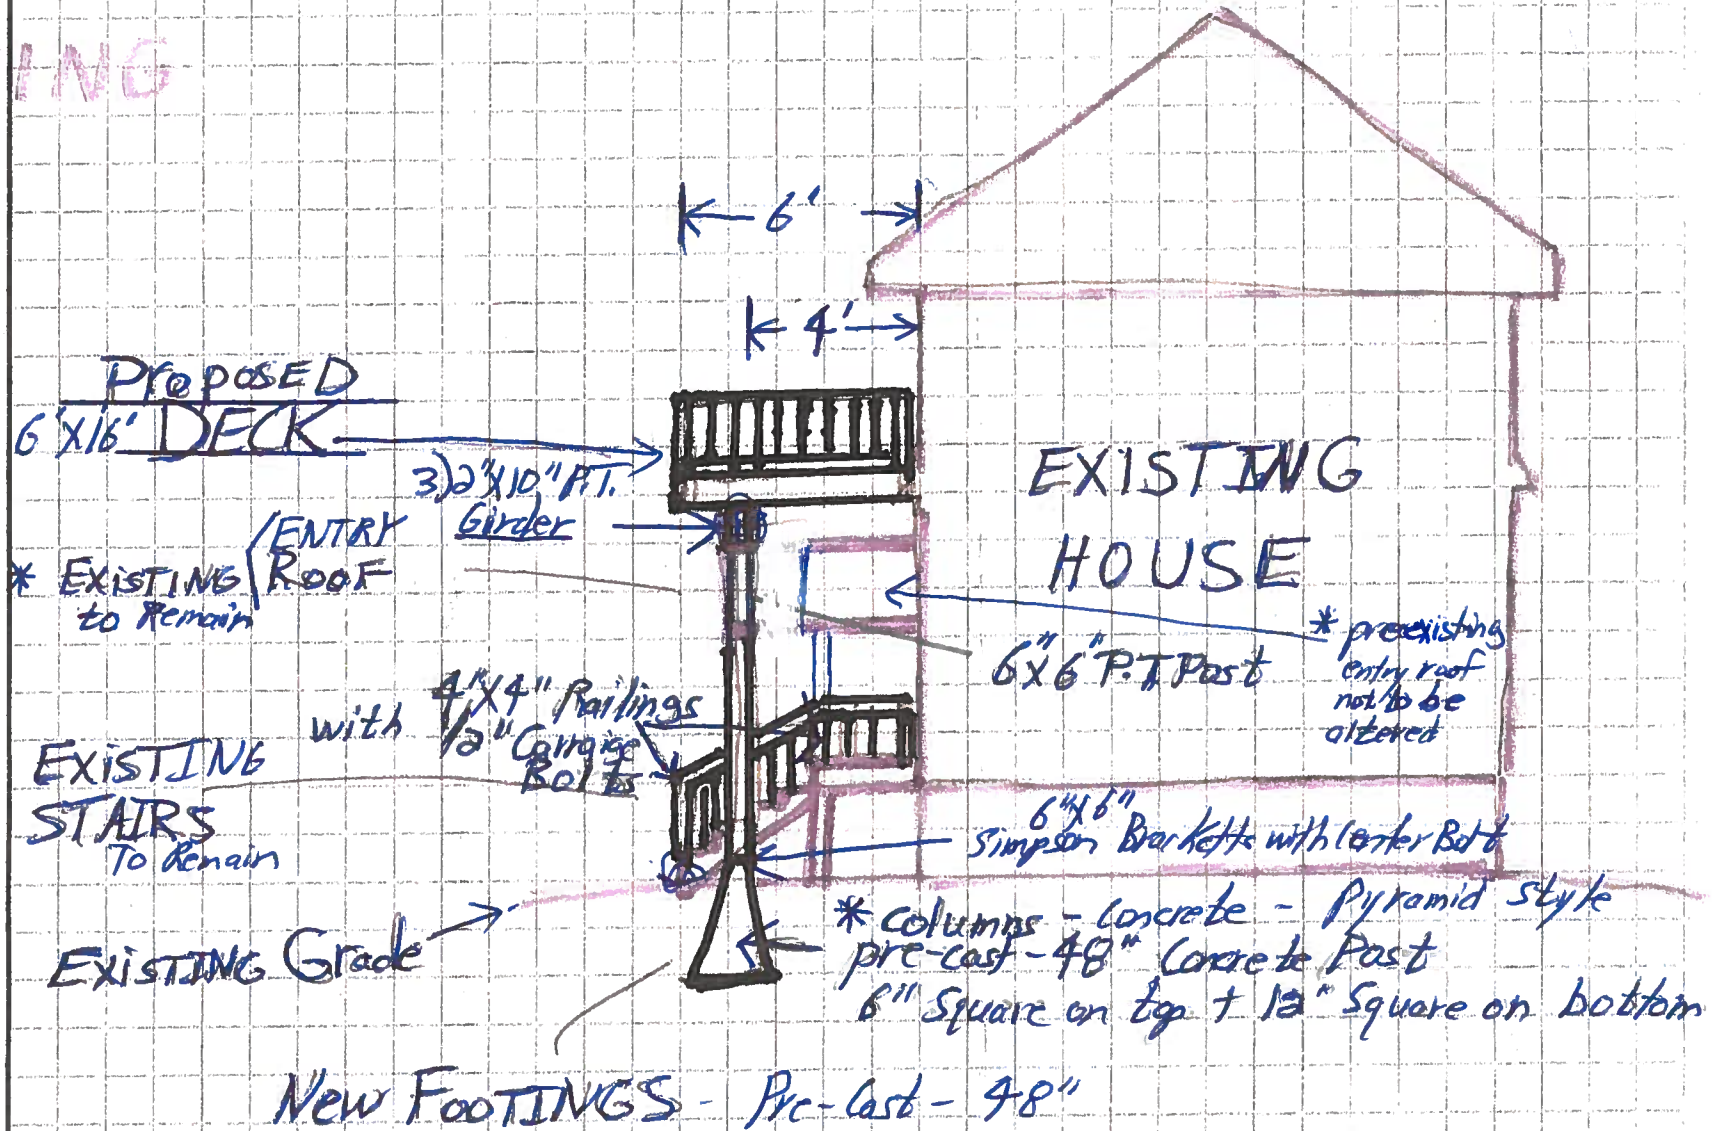 ING
6'
4'
Proposed
6'x16' DECK
3) 2"x10" P.T.
Girder
* EXISTING
to Remain
ENTRY
ROOF
EXISTING
HOUSE
* preexisting
entry roof
not to be
altered
6"x6" P.T. Post
with 4"x4" Railings
1/2" Carraige
Bolts
EXISTING
STAIRS
To Remain
6"x6"
Simpson Bracketts with Center Bolt
EXISTING Grade
* columns - concrete - Pyramid style
pre-cast - 48" Concrete Post
6" Square on top + 12" Square on bottom
New FOOTINGS - Pre-Cast - 48"